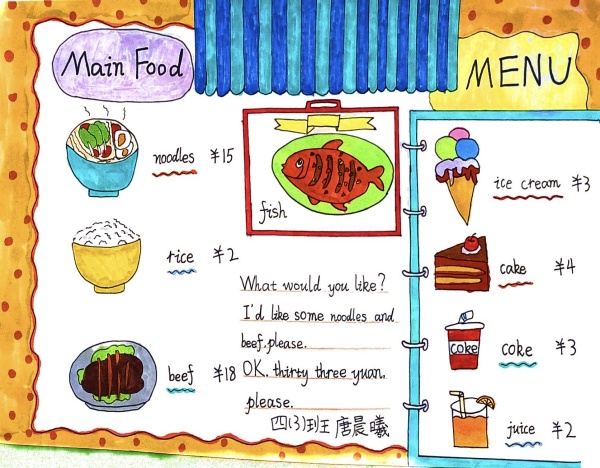 Main Food
noodles ¥15
rice ¥2
beef ¥18
fish
What would you like?
I'd like some noodles and
beef.please.
OK. thirty three yuan.
please.
四(3)班 唐晨曦
MENU
ice cream ¥3
cake ¥4
coke
coke ¥3
juice ¥2